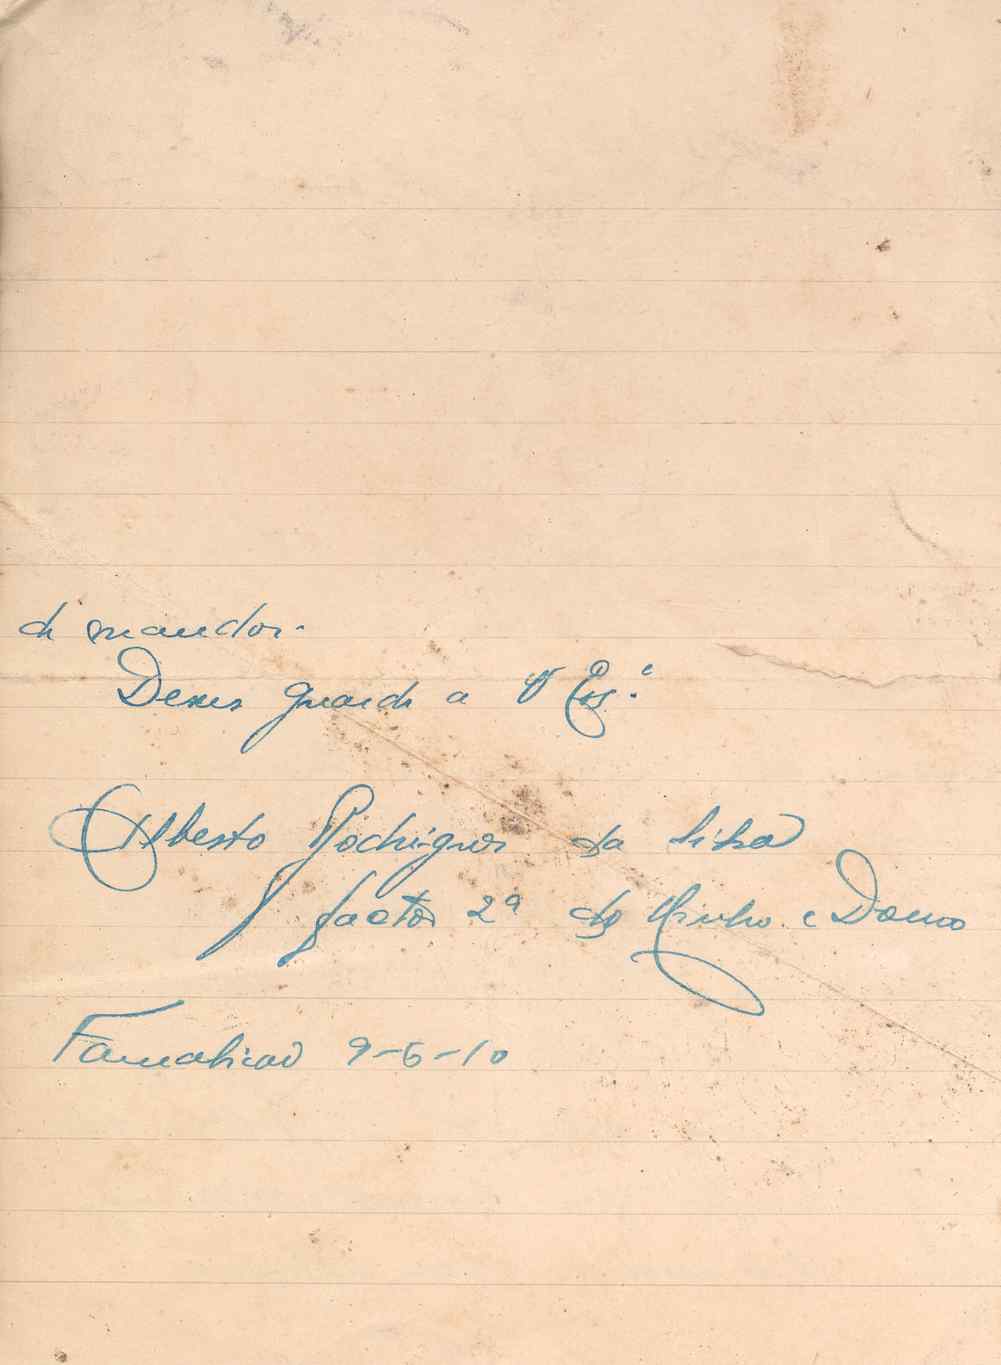 de mandar.
Deus guarde a V. Ex.ª
Alberto Rodrigues da Silva
factor 2ª do Minho e Douro
Famalicão 9-6-10